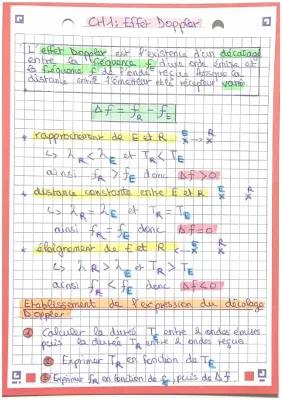 CH1: Effet Doppler
L'effet Doppler est l'existence d'un décalage
entre la fréquence f d'une onde émise et
la fréquence f de l'onde reçue lorsque la
distance entre l'émetteur et le récepteur varie.
Δf = fR - fE
* rapprochement de E et R E R
↳ λR < λE et TR < TE
ainsi fR > fE donc Δf > 0
* distance constante entre E et R E R
↳ λR = λE et TR = TE
ainsi fR = fE donc Δf = 0
* éloignement de E et R E R
↳ λR > λE et TR > TE
ainsi fR < fE donc Δf < 0
Etablissement de l'expression du décalage
Doppler
1 Calculer la durée TE entre 2 ondes émises
puis la durée TR entre 2 ondes reçues.
2 Exprimer TR en fonction de TE
3 Exprimer fR en fonction de fE, puis de Δf.